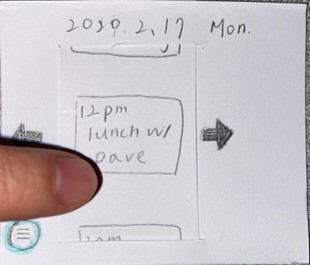 2020.2.17 Mon.
12pm
lunch w/
Dave